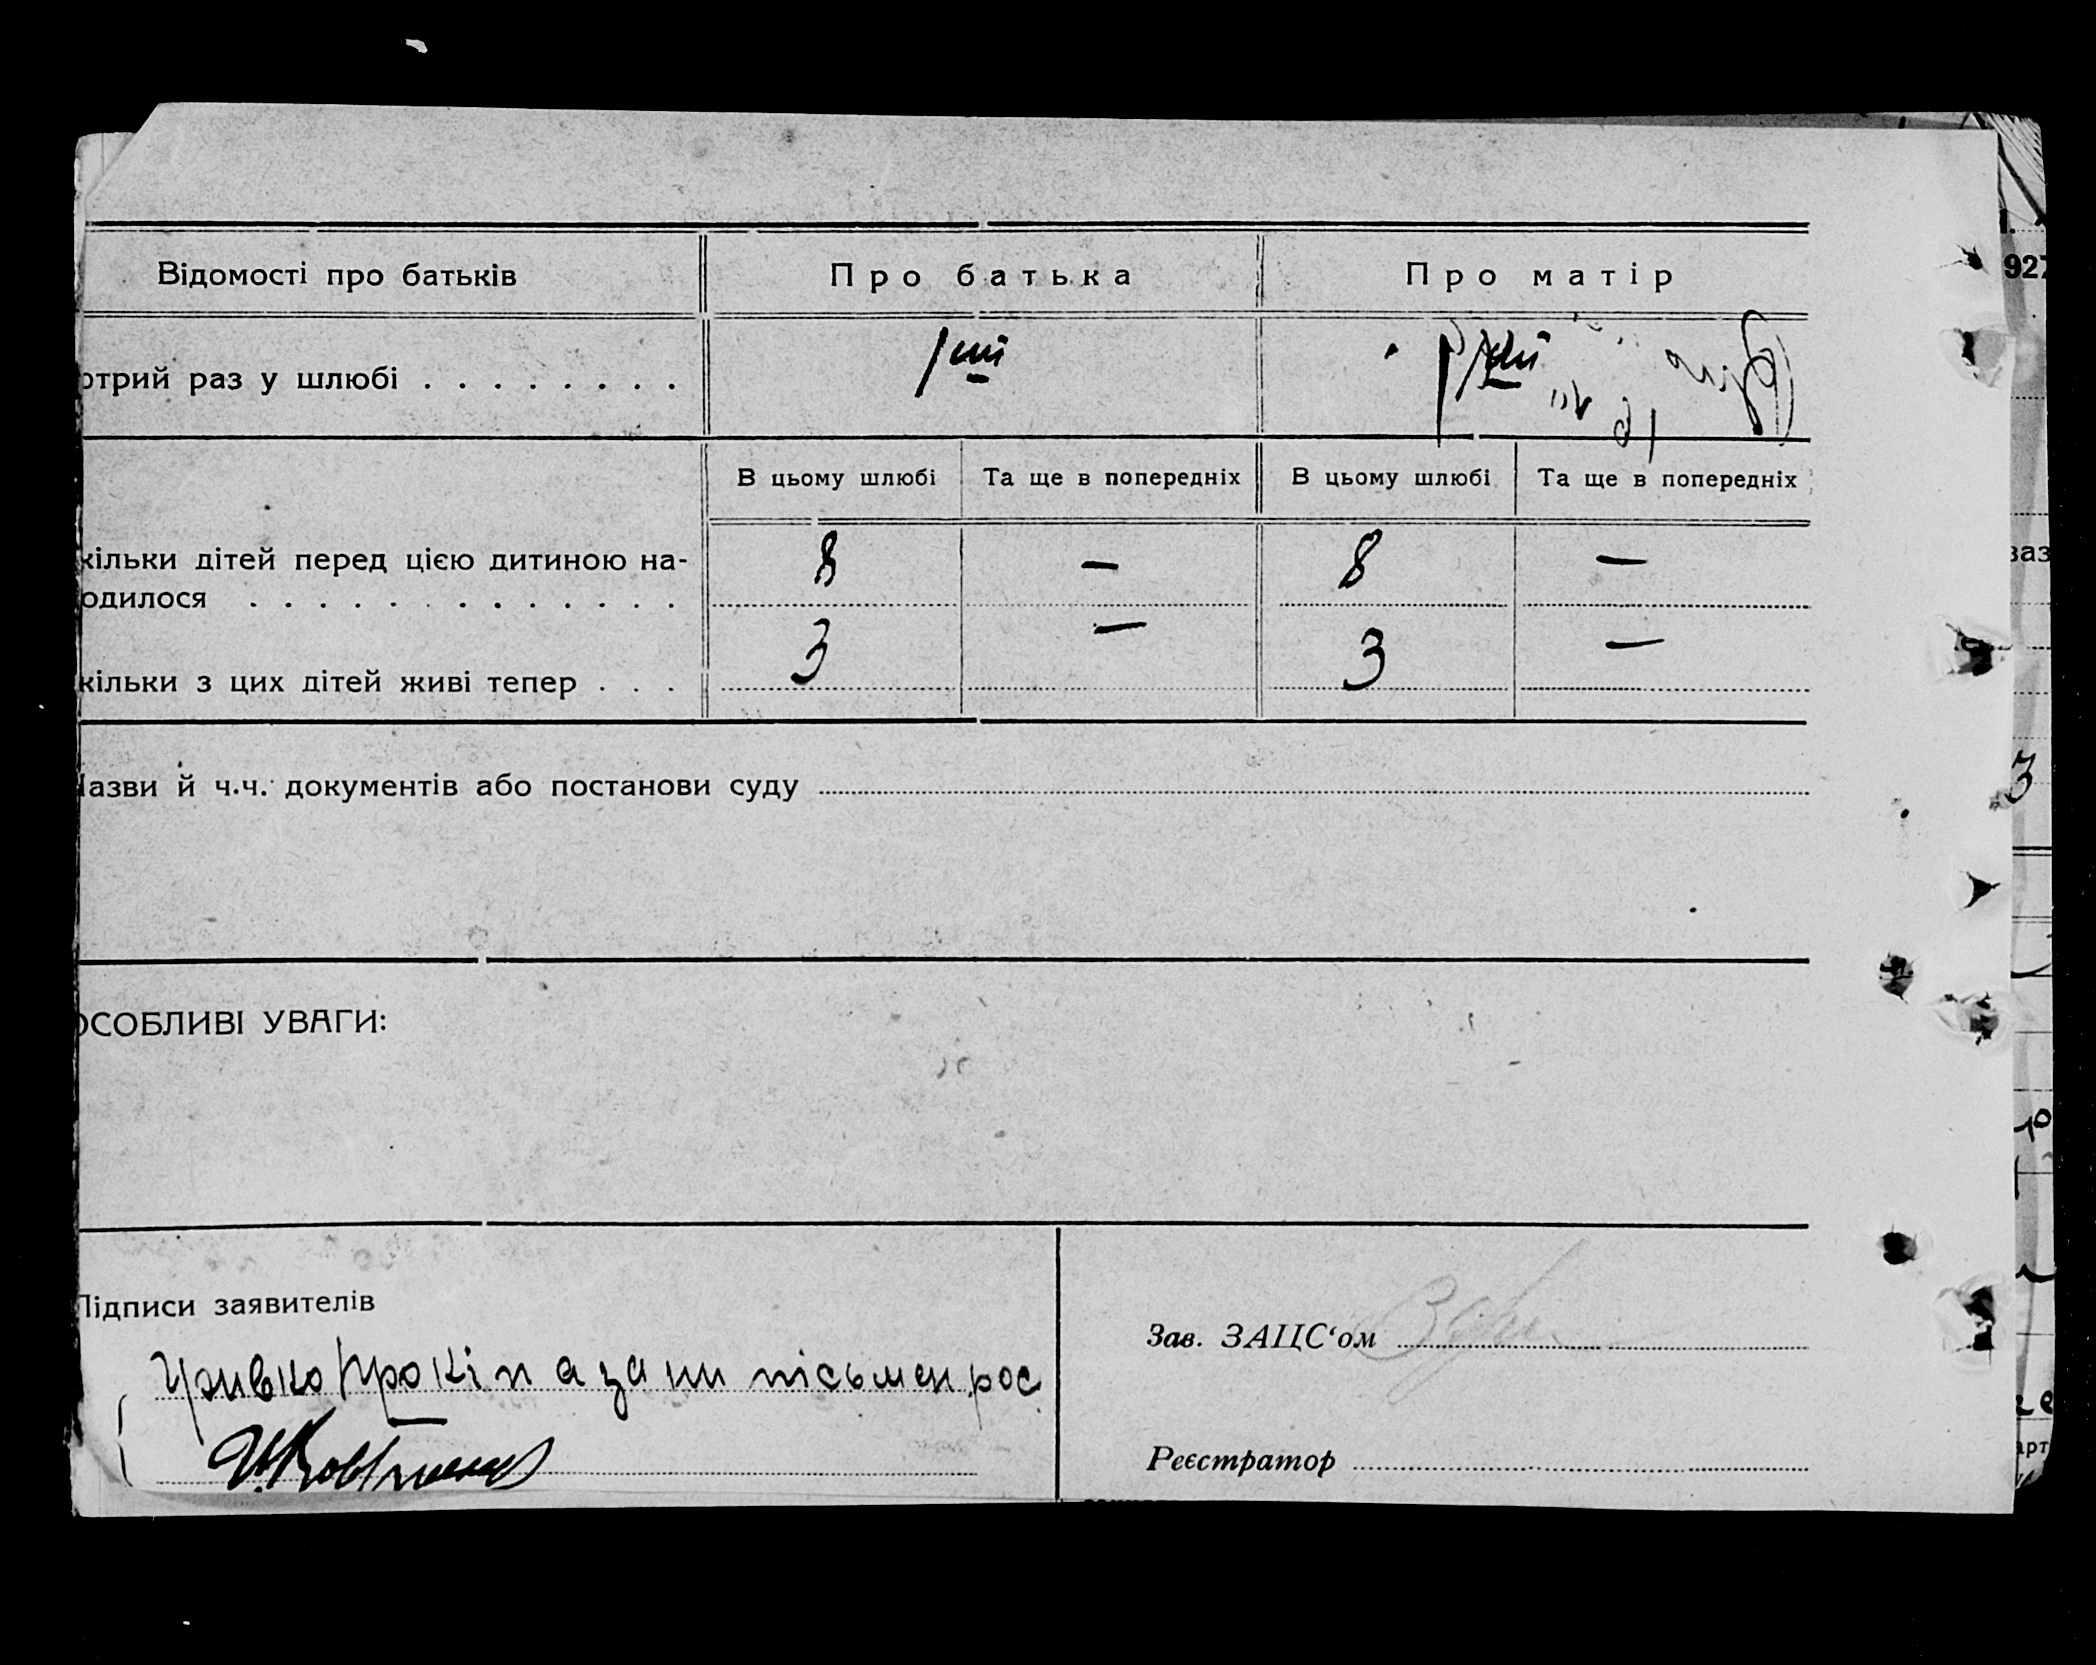 Відомості про батьків Про батька Про матір
отрий раз у шлюбі . . . . . . . . 1ший 1ший
В цьому шлюбі Та ще в попередніх В цьому шлюбі Та ще в попередніх
кільки дітей перед цією дитиною на-
одилося . . . . . . . . . . . . . 8 — 8 —
кільки з цих дітей живі тепер . . . 3 — 3 —
Назви й ч.ч. документів або постанови суду
ОСОБЛИВІ УВАГИ:
Підписи заявителів
Зав. ЗАЦС‘ом
Прокіп а за ни письмен рос
Реєстратор
927